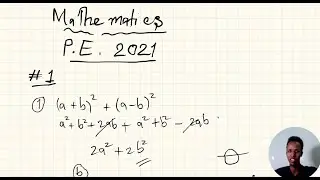 Mathematics
P.E. 2021
#1
① (a+b)² + (a-b)²
a²+b²+2ab + a²+b² - 2ab
2a² + 2b²
(b)